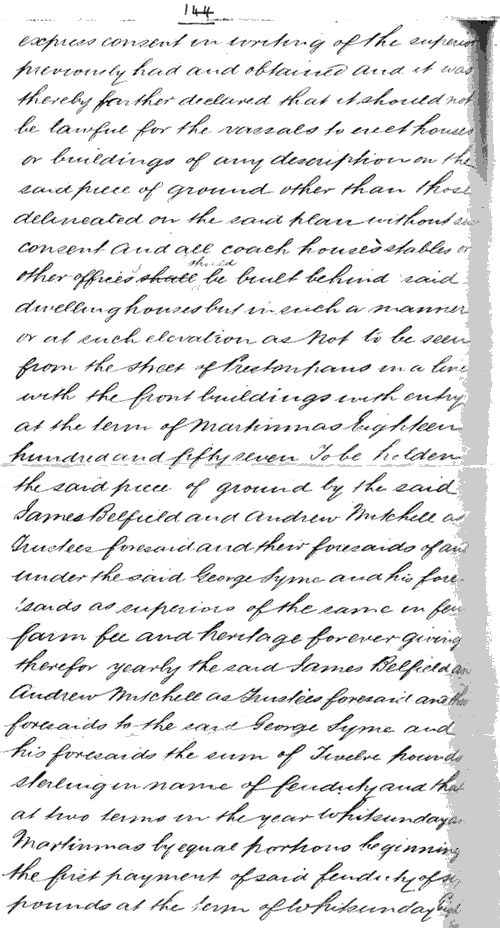 144
express consent in writing of the superior
previously had and obtained and it was
thereby further declared that it should not
be lawful for the vassals to erect houses
or buildings of any description on the
said piece of ground other than those
delineated on the said plan without such
consent And all coach houses stables or
should
other offices shall be built behind said
dwelling houses but in such a manner
or at such elevation as not to be seen
from the street of Prestonpans in a line
with the front buildings with entry
at the term of Martinmas Eighteen
hundred and fifty seven To be holden
the said piece of ground by the said
James Belfield and Andrew Mitchell as
Trustees foresaid and their foresaids of and
under the said George Syme and his fore-
saids as superiors of the same in feu
farm fee and heritage forever giving
therefor yearly the said James Belfield and
Andrew Mitchell as Trustees foresaid and their
foresaids to the said George Syme and
his foresaids the sum of Twelve pounds
sterling in name of feuduty and that
at two terms in the year Whitsunday and
Martinmas by equal portions beginning
the first payment of said feuduty of six
pounds at the term of Whitsunday